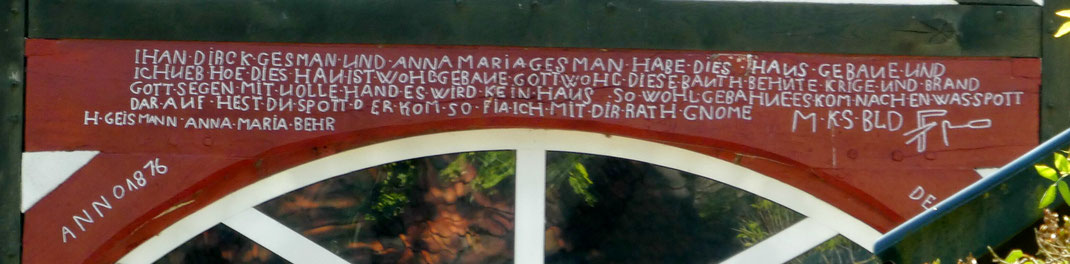 IHAN·DIRCK·GESMAN·UND·ANNA MARIA GESMAN HABE·DIES HAUS·GEBAUE·UND
ICH UEB HOF DIES·HAU IST WOHL GEBAUE·GOTT WOHL·DIESE BAUTH·BEHUTE·KRIGE·UND BRAND
GOTT·SEGEN·MIT UOLLE·HAND·ES·WIRD·KEIN HAUS·SO·WOHL GEBAHUE ES KOM·NACH·EN·WAS SPOTT
DAR·AUF·HEST·DU SPOTT·D ER·KOM·SO·FIA·ICH·MIT·DIR·RATH·GNOME M·KS·BLD
H·GEISMANN·ANNA·MARIA·BEHR
ANNO 1876
DE